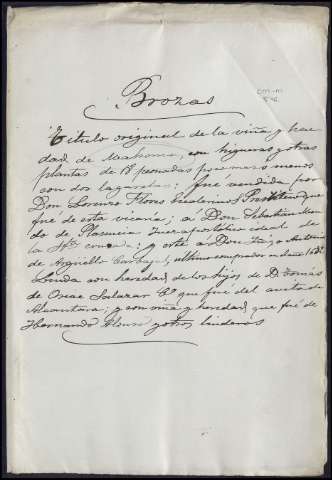 Brozas
Titulo original de la viña y here
dad de Mahoma, con higueras y otras
plantas de 18 peonadas poco mas ó menos
con dos lagaretas: fué vendida por
Don Lorenzo Flores Presbitero que
fué de esta vicaria; a Don Sebastian
do de Plasencia
la Sta. cruzada; y este a Don Antonio
de Arguello Carbajal, ultimo comprador
Linda con heredad de los hijos de D. Tomás
de Ovac Salazar Co que fué del
Alcantara; y con viña y heredad que fué de
Hernando Alonso y otros linderos